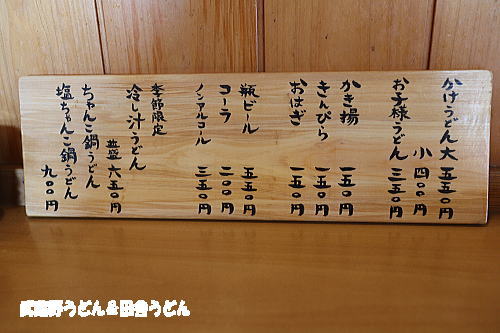 かけうどん大 五五〇円
小 四〇〇円
お子様うどん 三五〇円
かき揚 一五〇円
きんぴら 一五〇円
おはぎ 一五〇円
瓶ビール 五五〇円
コーラ 二〇〇円
ノンアルコール 三五〇円
季節限定
冷し汁うどん
並盛 六五〇円
ちゃんこ鍋うどん
塩ちゃんこ鍋うどん 九〇〇円
武蔵野うどん&田舎うどん